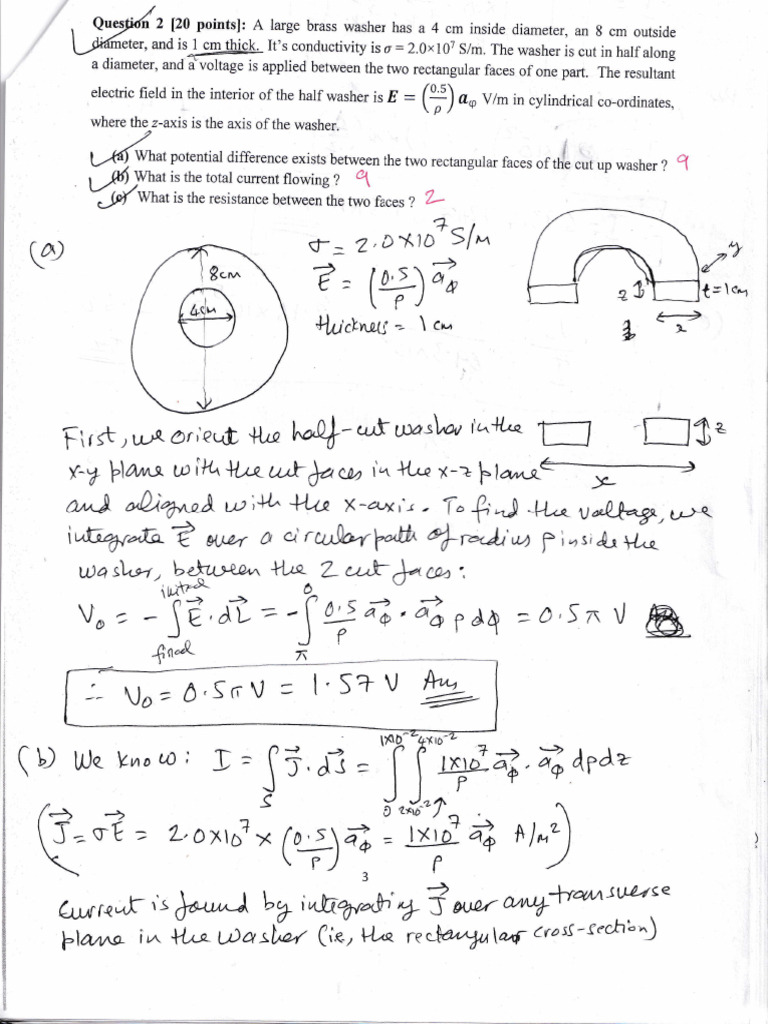 Question 2 [20 points]: A large brass washer has a 4 cm inside diameter, an 8 cm outside
diameter, and is 1 cm thick. It's conductivity is σ = 2.0×10⁷ S/m. The washer is cut in half along
a diameter, and a voltage is applied between the two rectangular faces of one part. The resultant
electric field in the interior of the half washer is E = (0.5/ρ) a_φ V/m in cylindrical co-ordinates,
where the z-axis is the axis of the washer.
(a) What potential difference exists between the two rectangular faces of the cut up washer ? 9
(b) What is the total current flowing ? 9
(c) What is the resistance between the two faces ? 2
(a)
8cm
4cm
σ = 2.0×10⁷ S/M
E⃗ = (0.5/ρ) a⃗_φ
thickness = 1 cm
y
z
t = 1cm
x
First, we orient the half-cut washer in the
z
x-y plane with the cut faces in the x-z plane
x
and aligned with the x-axis. To find the voltage, we
integrate E⃗ over a circular path of radius ρ inside the
washer, between the 2 cut faces:
V₀ = - ∫_final^initial E⃗ · dL⃗ = - ∫_π^0 0.5/ρ a⃗_φ · a⃗_φ ρ dφ = 0.5 π V
∴ V₀ = 0.5π V = 1.57 V Ans
(b) We know: I = ∫_S J⃗ · dS⃗ = ∫_0^1×10⁻² ∫_2×10⁻²^4×10⁻² 1×10⁷/ρ a⃗_φ · a⃗_φ dρdz
(J⃗ = σE⃗ = 2.0×10⁷ × (0.5/ρ) a⃗_φ = 1×10⁷/ρ a⃗_φ A/m²)
3
Current is found by integrating J⃗ over any transverse
plane in the washer (ie, the rectangular cross-section)